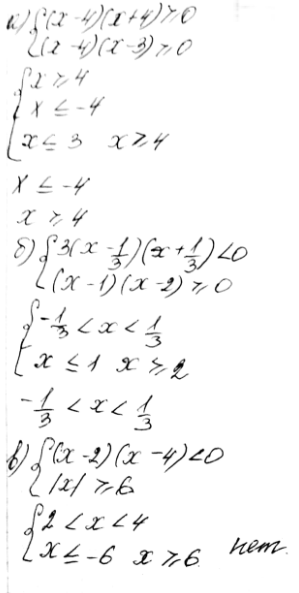 а) {(x-4)(x+4)≥0
{(x-4)(x-3)≥0
{x≥4
x≤-4
x≤3 x≥4
x≤-4
x≥4
б) {3(x-1/3)(x+1/3)<0
{(x-1)(x-2)≥0
{-1/3<x<1/3
x≤1 x≥2
-1/3<x<1/3
в) {(x-2)(x-4)<0
{|x|≥6
{2<x<4
x≤-6 x≥6 нет